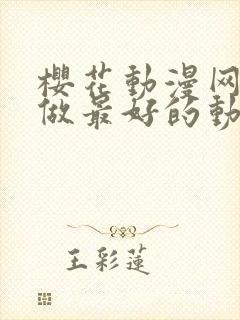 櫻花動漫网
做最好的動
王彩蓮